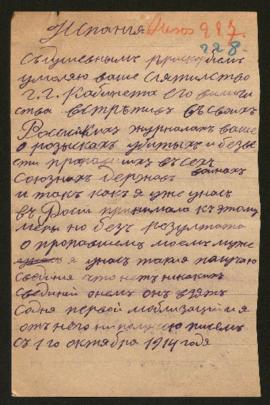 Испания
227.
228.
Съ душевнымъ прискорбием
умоляю ваше сиятелство
г.г. Кабинета его величи
ства встретив въ своих
Российких журналах ваше
о розысках убитых и безве
сти пропавших в всех
Союзнах держав воинах
и так как я уже унас
въ Росіи принимала к этому
меры но без результата
о пропавшем моем муже
я унас такия получаю
сведения что нет никаких
сведений онем он взят
содня первой мобилизации и я
от него ни получаю писем
съ 1го октября 1914 года